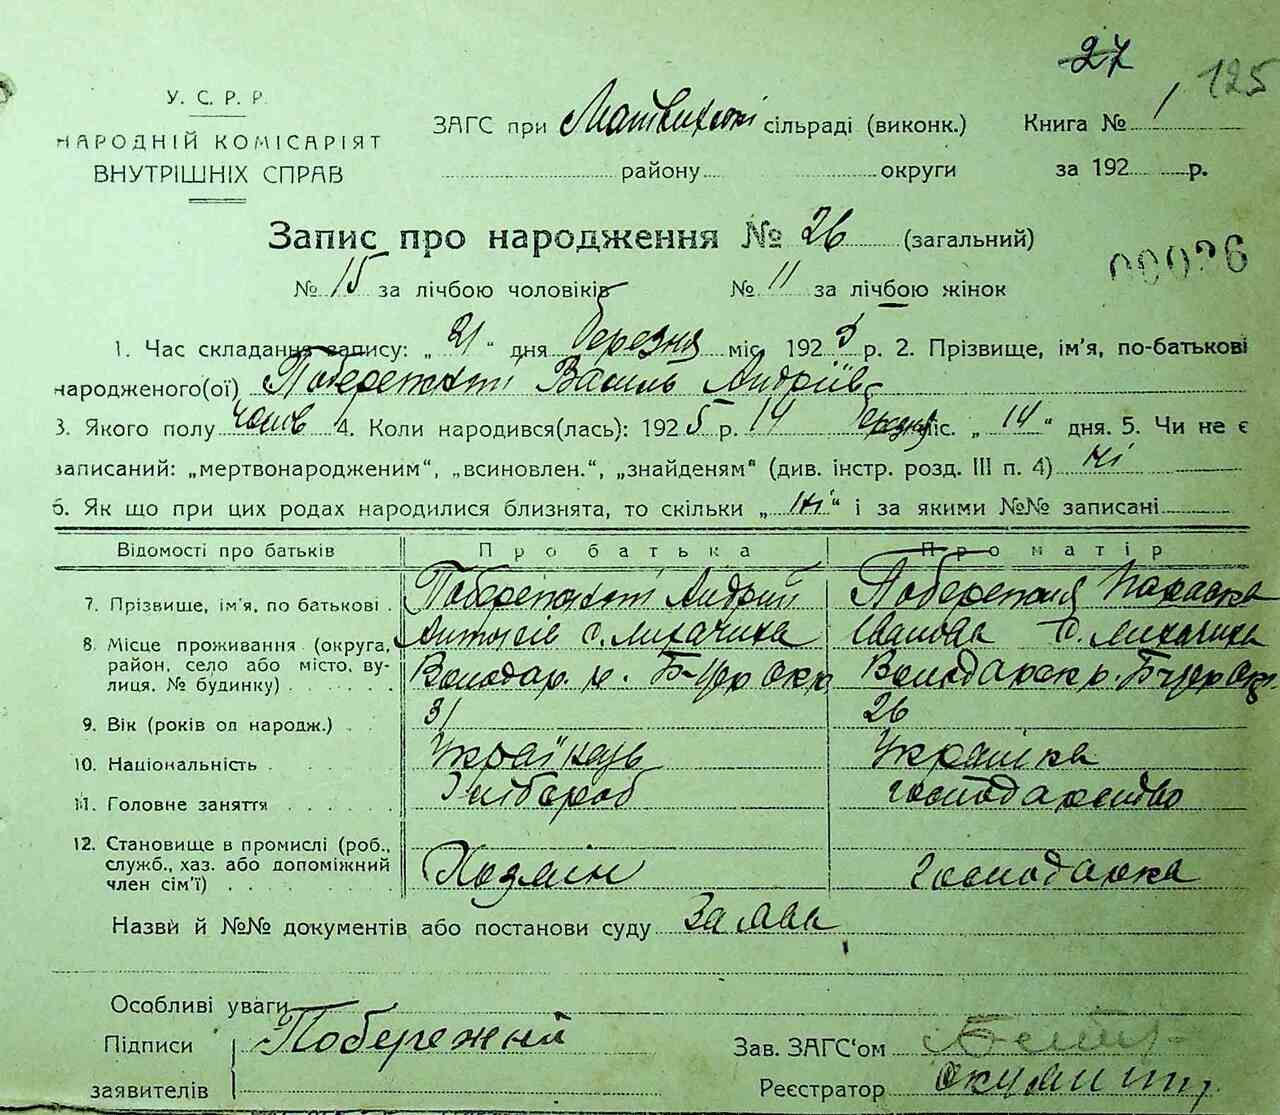 27 125
У. С. Р. Р.
НАРОДНІЙ КОМІСАРІЯТ
ВНУТРІШНІХ СПРАВ
ЗАГС при сільраді (виконк.) Книга № 1
району округи за 192 р.
Запис про народження № 26 (загальний)
00026
№ 15 за лічбою чоловіків № 11 за лічбою жінок
1. Час складання запису: „ 21 “ дня березня міс. 1925 р. 2. Прізвище, ім'я, по-батькові
народженого(ої) Побережний Василь Андріїв
3. Якого полу чолів 4. Коли народився(лась): 1925 р. 14 березня міс. „ 14 “ дня. 5. Чи не є
записаний: „мертвонародженим“, „всиновлен.“, „знайденям“ (див. інстр. розд. III п. 4) ні
6. Як що при цих родах народилися близнята, то скільки „ ні “ і за якими №№ записані
Відомості про батьків Про батька Про матір
7. Прізвище, ім'я, по батькові . Побережний Андрій Побережна Параска
8. Місце проживання (округа, район, село або місто, вулиця. № будинку) . . . . Антонів с. Лихачиха Іванова с. Лихачиха
Володар. р. Б-Цер Окр Володарск р. Б-Цер Окр.
9. Вік (років од народж.) . . 31 26
10. Національність . . . . . Українець Українка
11. Головне заняття . . . . . Хлібороб господарство
12. Становище в промислі (роб., служб., хаз. або допоміжний член сім'ї) . . . . . . . Хозяін Господарка
Назви й №№ документів або постанови суду Заява
Особливі уваги
Підписи Побережний Зав. ЗАГС'ом
заявителів Реєстратор